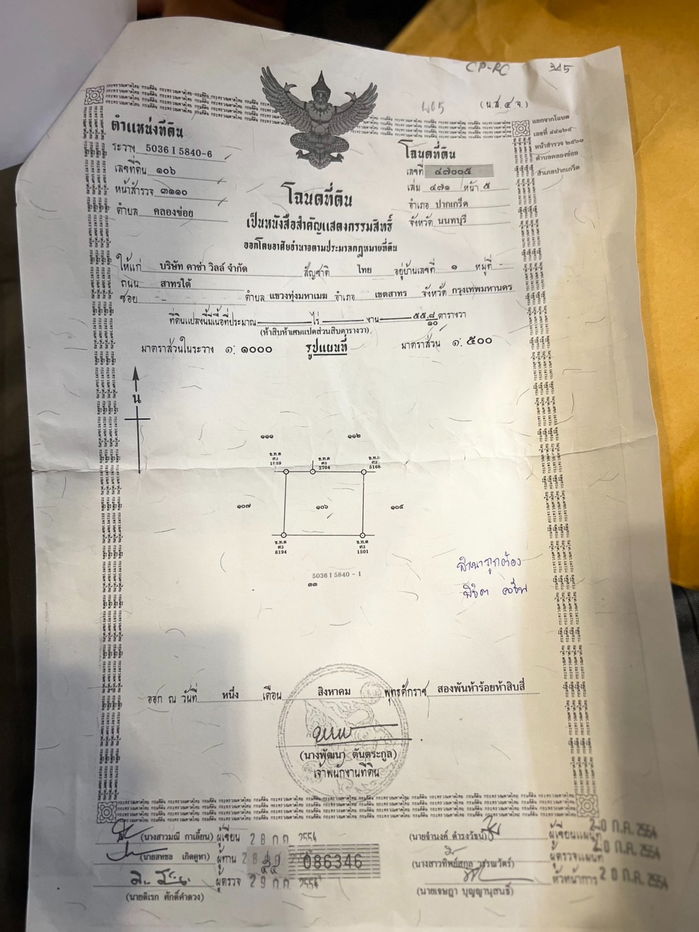 CP-RC
345
405
(น.ส.๔ จ.)
ตำแหน่งที่ดิน
ระวาง 5036 I 5840-6
เลขที่ดิน ๑๐๖
หน้าสำรวจ ๓๑๑๐
ตำบล คลองข่อย
โฉนดที่ดิน
เลขที่ ๔๗๐๐๕
เล่ม ๔๗๑ หน้า ๕
อำเภอ ปากเกร็ด
จังหวัด นนทบุรี
แยกจากโฉนด
ตำบลคลองข่อย
อำเภอปากเกร็ด
โฉนดที่ดิน
เป็นหนังสือสำคัญแสดงกรรมสิทธิ์
ออกโดยอาศัยอำนาจตามประมวลกฎหมายที่ดิน
ให้แก่ บริษัท คาซ่า วิลล์ จำกัด สัญชาติ ไทย อยู่บ้านเลขที่ ๑ หมู่ที่ -
ถนน สาทรใต้
ซอย - ตำบล แขวงทุ่งมหาเมฆ อำเภอ เขตสาทร จังหวัด กรุงเทพมหานคร
ที่ดินแปลงนี้มีเนื้อที่ประมาณ - ไร่ - งาน ๕๕ ๘/๑๐ ตารางวา
(ห้าสิบห้าเศษแปดส่วนสิบตารางวา)
มาตราส่วนในระวาง ๑: ๑๐๐๐ รูปแผนที่ มาตราส่วน ๑: ๕๐๐
น
๑๑๑ ๑๑๒
๑๐๗ ๑๐๖ ๑๐๕
5036 I 5840 - 1
๑๓
สำเนาถูกต้อง
ออก ณ วันที่ หนึ่ง เดือน สิงหาคม พุทธศักราช สองพันห้าร้อยห้าสิบสี่
(นางพัฒนา ตันตระกูล)
เจ้าพนักงานที่ดิน
(นางสาวมณี กาเลี้ยน) ผู้เขียน 28 ก.ค. 2554
ผู้ทาน
086346
ผู้ตรวจ 29 ก.ค. 2554
(นายดิเรก ศักดิ์คำดวง)
(นายจำนงค์ ดำรงวัธน์) ผู้เขียนแผนที่ 20 ก.ค. 2554
ผู้ตรวจแผนที่ 20 ก.ค. 2554
หัวหน้าการ 20 ก.ค. 2554
(นายเจษฎา บุญญานุสนธิ์)